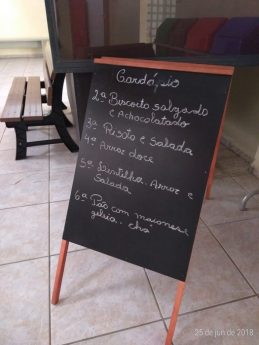 Cardápio
2ª Biscoito salgado
e Achocolatado
3ª Risoto e Salada
4ª Arroz doce
5ª Lentilha. Arroz e
Salada
6ª Pão com maionese
geleia.. chá
25 de jun de 2018